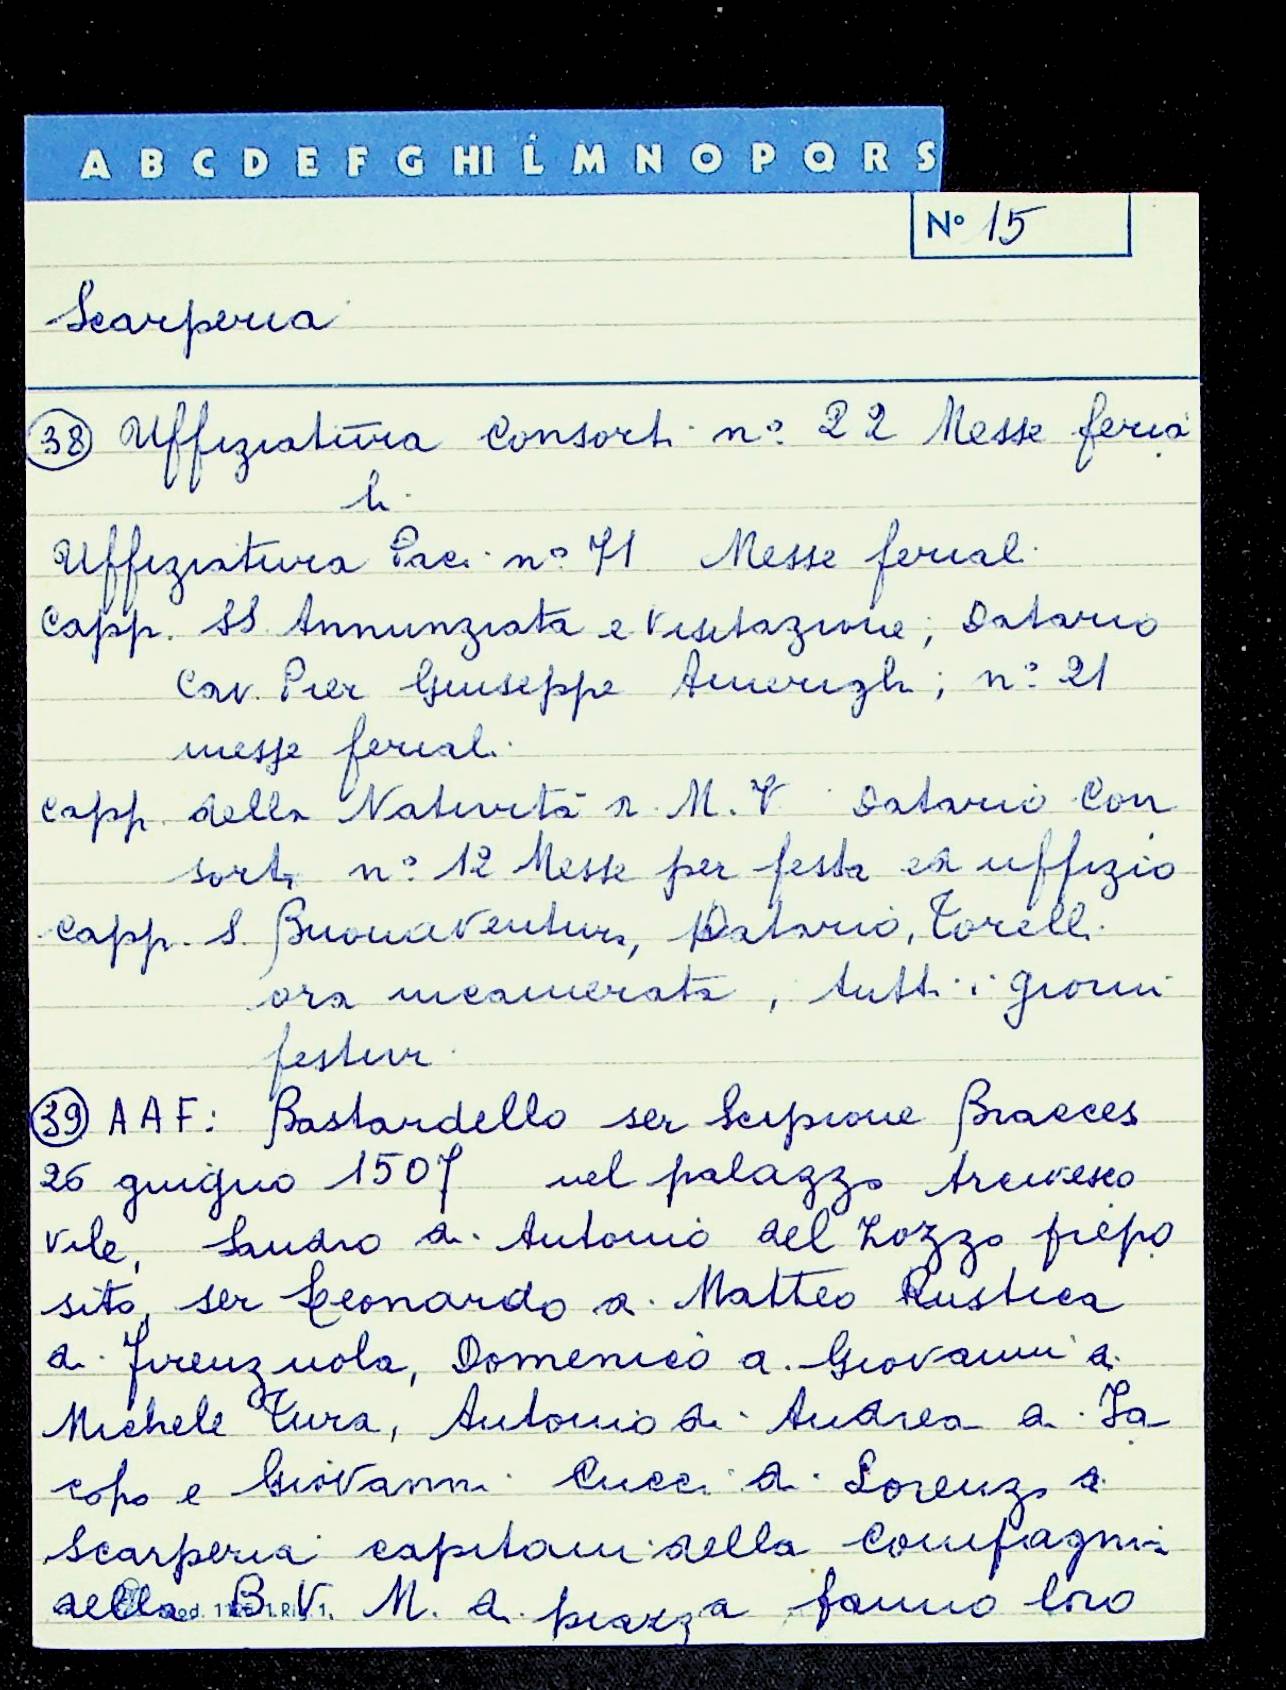 A B C D E F G HI L M N O P Q R S
Nº 15
Scarperia
38 Uffiziatura Consorti nº 22 Messe feria
li
Uffiziatura Paci nº 71 Messe feriali
Capp. SS Annunziata e Visitazione; Datario
Cav. Pier Giuseppe Amerighi; nº 21
messe feriali
Capp. della Natività di M. V. Datario Con
sorti nº 12 Messe per festa ed uffizio
Capp. S. Buonaventura, Datario, Torelli
ora incamerata, tutti i giorni
festivi
39 AAF: Bastardello ser Scipione Braeces
26 giugno 1507 nel palazzo Arcivesco
vile, Sandro di Antonio del Zozzo prepo
sito, ser Leonardo di Matteo Rustica
di Firenzuola, Domenico di Giovanni di
Michele Tura, Antonio di Andrea di Ja
copo e Giovanni Cucci di Lorenzo di
Scarperia capitani della Compagnia
della B. V. M. di piazza fanno loro